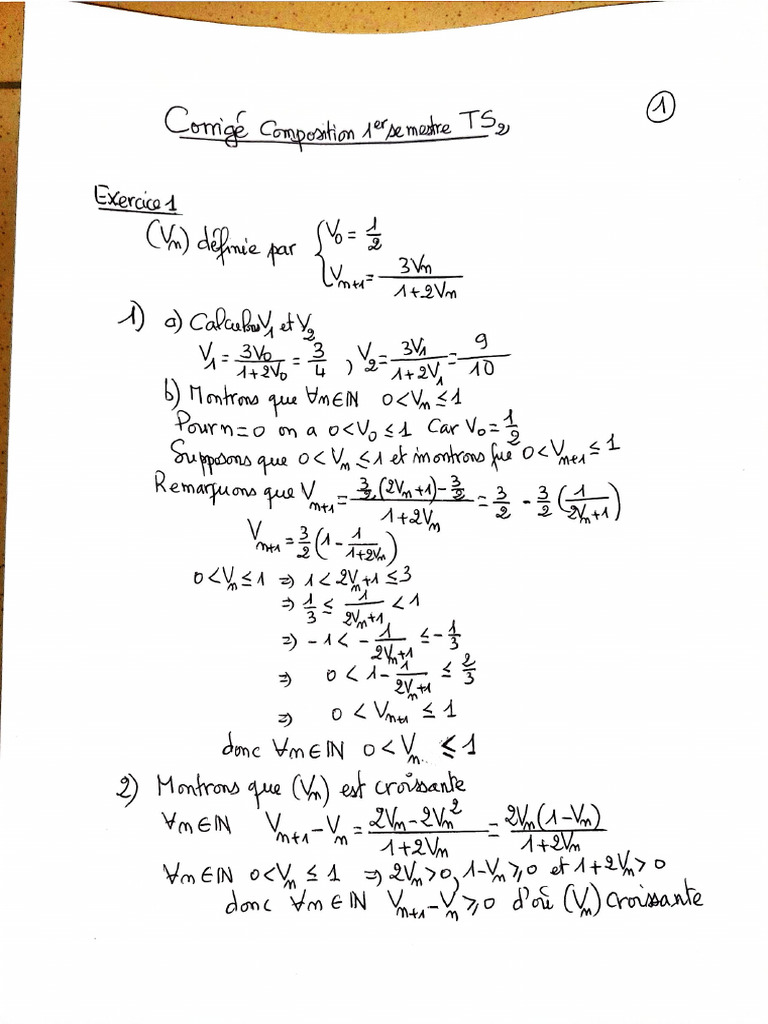 1
Corrigé Composition 1er semestre TS2
Exercice 1
(Vn) définie par { V0 = 1/2
Vn+1 = 3Vn/(1+2Vn)
1) a) Calculons V1 et V2
V1 = 3V0/(1+2V0) = 3/4 , V2 = 3V1/(1+2V1) = 9/10
b) Montrons que ∀n∈ℕ 0<Vn≤1
Pour n=0 on a 0<V0≤1 Car V0=1/2
Supposons que 0<Vn≤1 et montrons que 0<Vn+1≤1
Remarquons que Vn+1 = (3/2(2Vn+1)-3/2)/(1+2Vn) = 3/2 - 3/2(1/(2Vn+1))
Vn+1 = 3/2(1 - 1/(1+2Vn))
0<Vn≤1 ⇒ 1<2Vn+1≤3
⇒ 1/3 ≤ 1/(2Vn+1) < 1
⇒ -1 < -1/(2Vn+1) ≤ -1/3
⇒ 0 < 1-1/(2Vn+1) ≤ 2/3
⇒ 0 < Vn+1 ≤ 1
donc ∀n∈ℕ 0<Vn ≤ 1
2) Montrons que (Vn) est croissante
∀n∈ℕ Vn+1-Vn = (2Vn-2Vn²)/(1+2Vn) = 2Vn(1-Vn)/(1+2Vn)
∀n∈ℕ 0<Vn≤1 ⇒ 2Vn>0, 1-Vn≥0 et 1+2Vn>0
donc ∀n∈ℕ Vn+1-Vn≥0 d'où (Vn) croissante